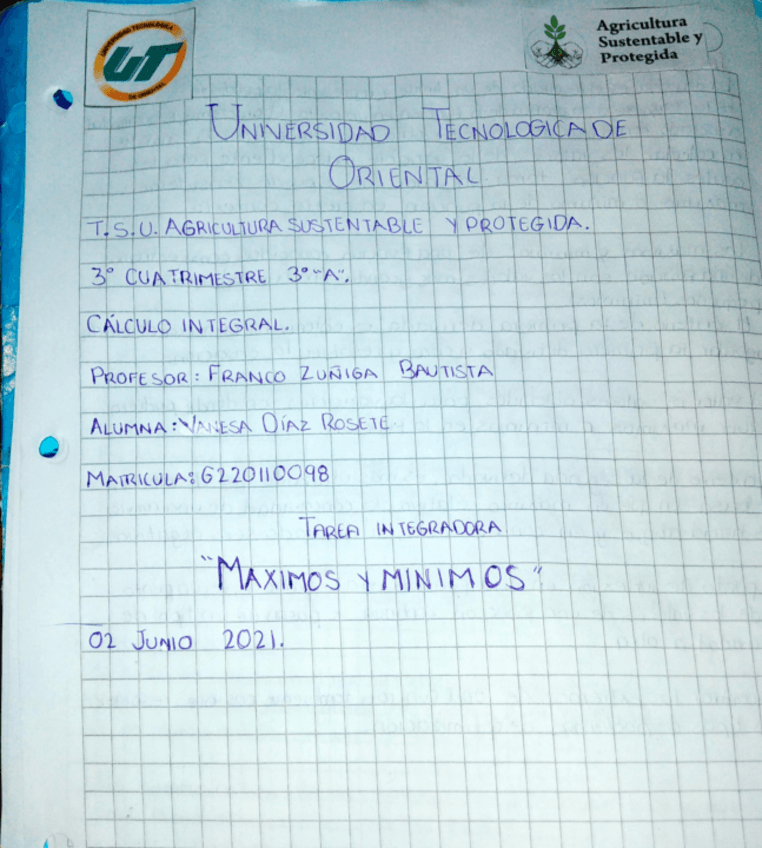 UNIVERSIDAD TECNOLÓGICA
UT
DE ORIENTAL
Agricultura
Sustentable y
Protegida
UNIVERSIDAD TECNOLOGICA DE
ORIENTAL
T.S.U. AGRICULTURA SUSTENTABLE Y PROTEGIDA.
3° CUATRIMESTRE 3° "A".
CÁLCULO INTEGRAL.
PROFESOR: FRANCO ZUÑIGA BAUTISTA
ALUMNA: VANESA DÍAZ ROSETE
MATRICULA: 6220110098
TAREA INTEGRADORA
"MAXIMOS Y MINIMOS"
02 JUNIO 2021.